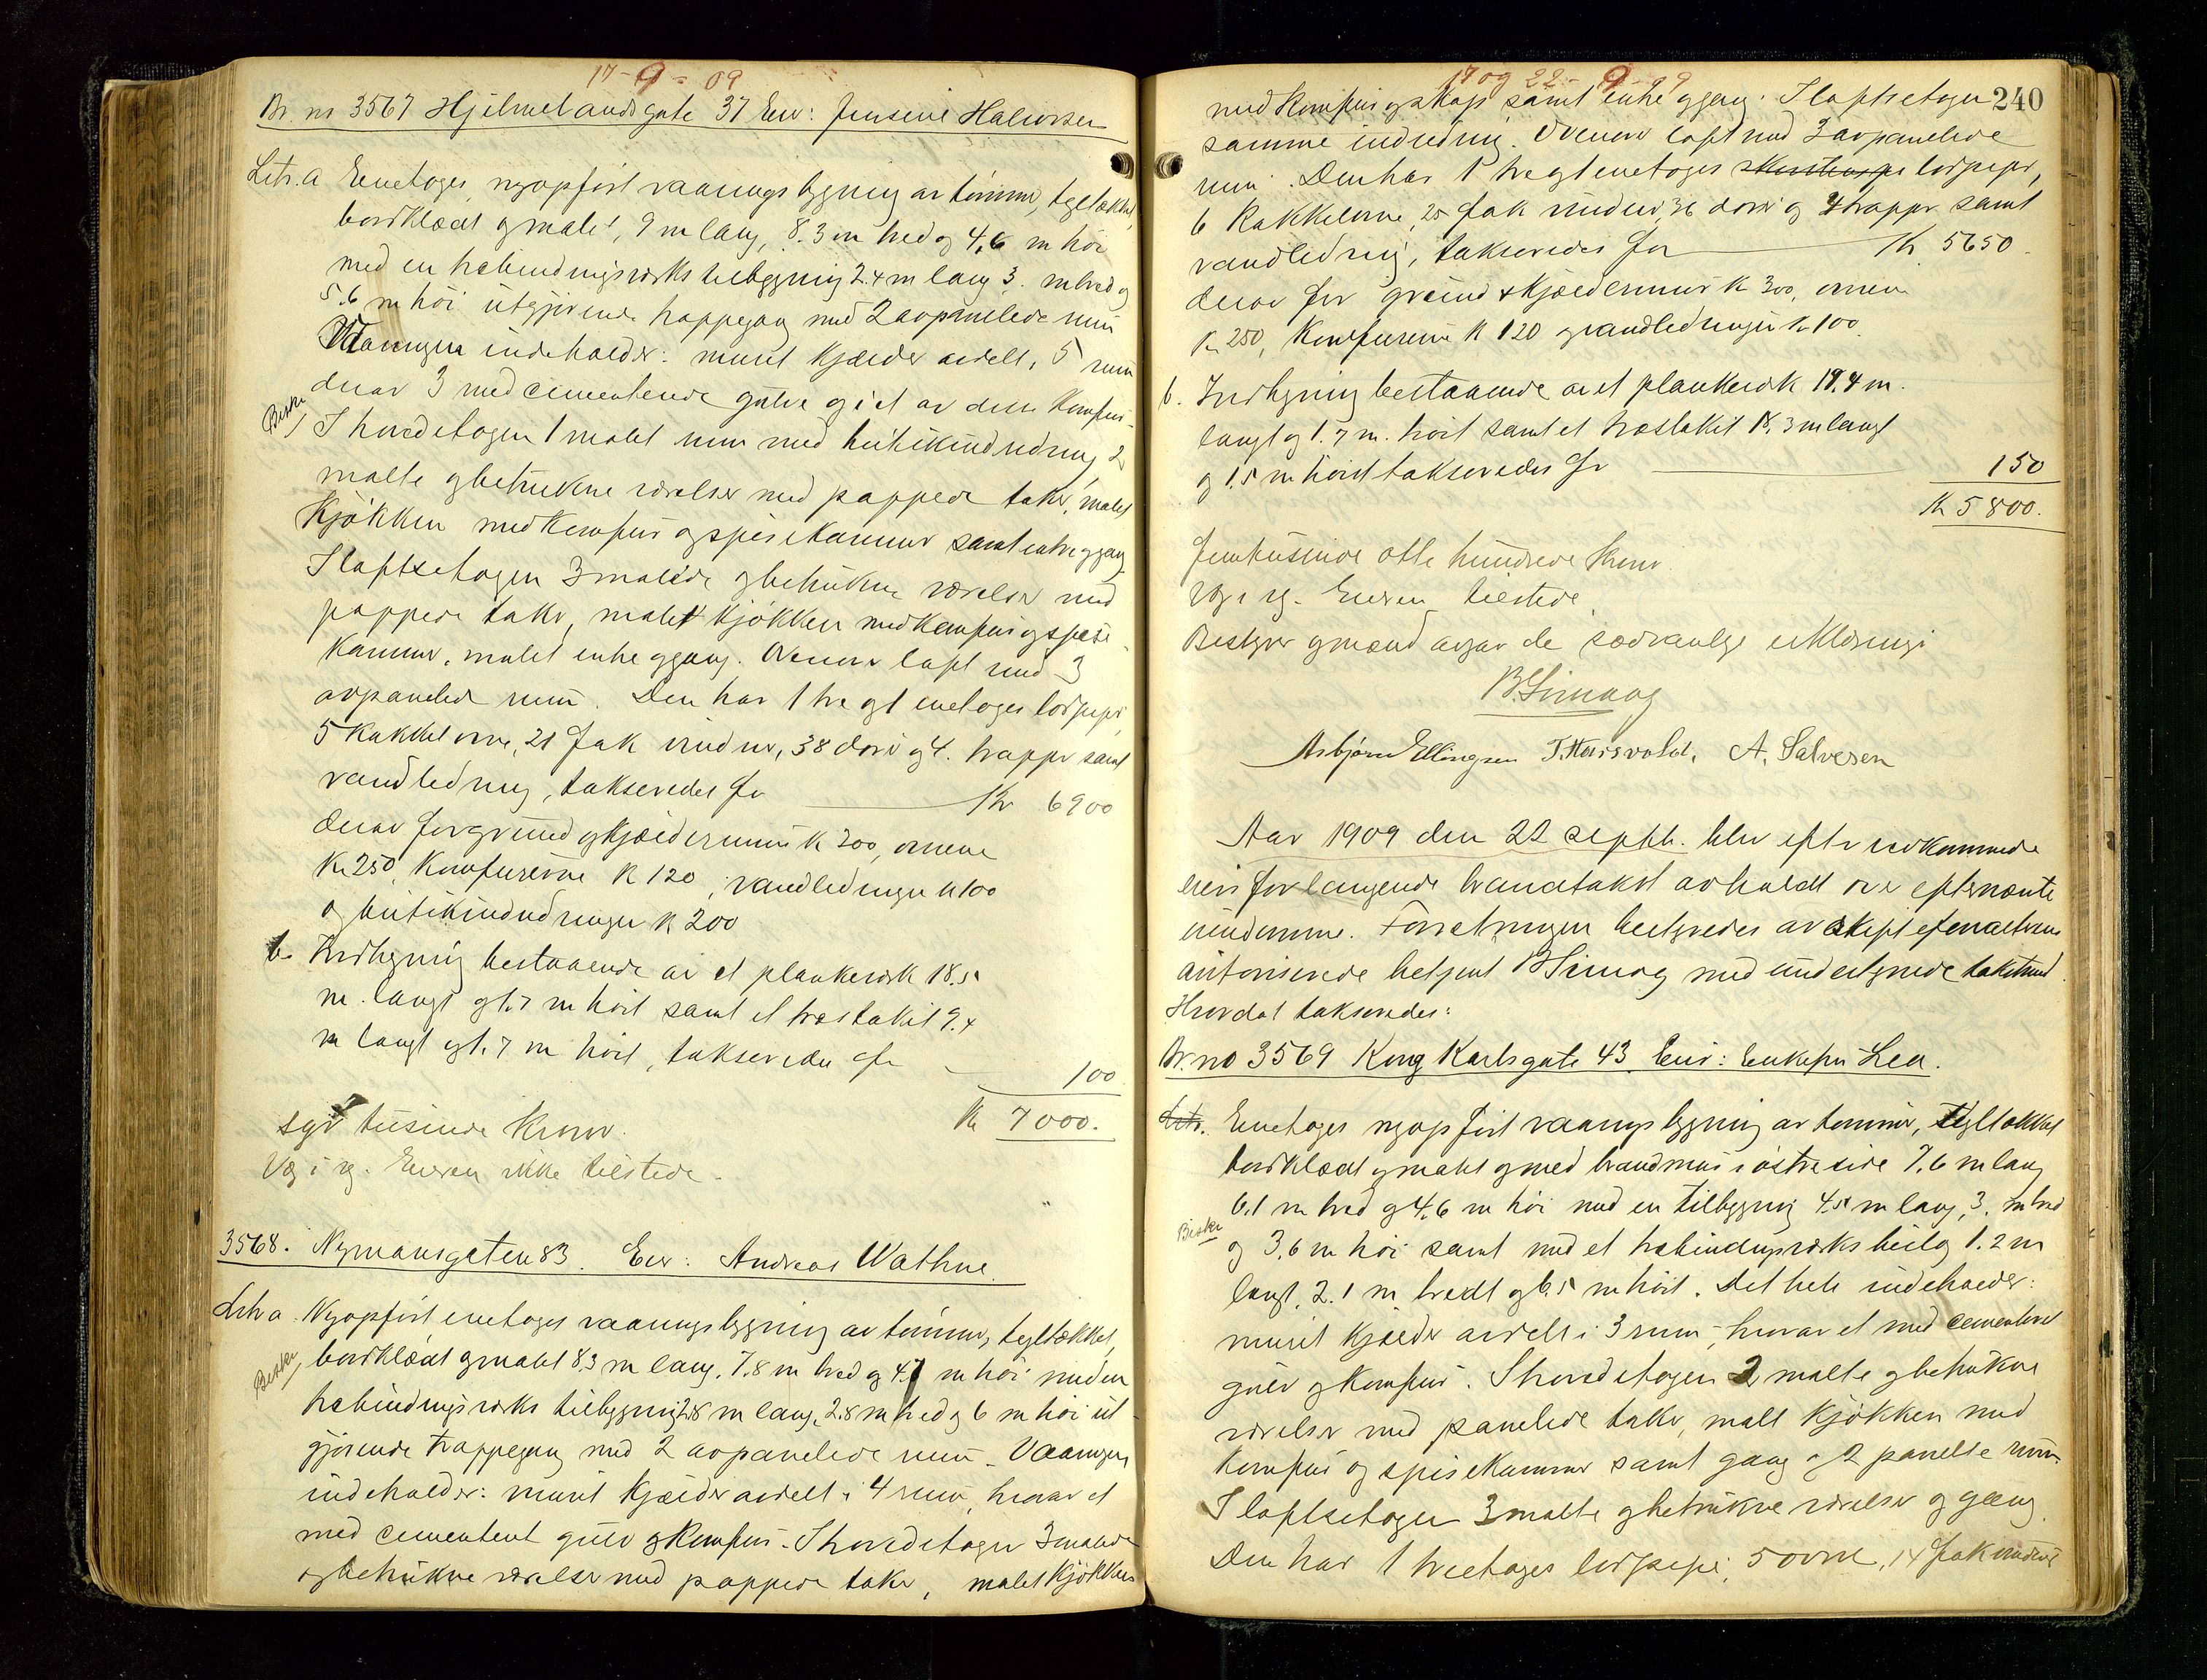 17-9-09
Br. no 3567 Hjelmelandsgate 37 Eier: Jensine Halvorsen
Litr. a Eenetages nyopført vaaningsbygning av tømmer, tegltækket,
bordklædt og malet, 9 m lang, 8.3 m bred og 4,6 m høi
med en træbindingsverks tilbygning 2.4 m lang 3. m bred og
5.6 m høi utgjørende trappegang med 2 avpanelede rum
Vaaningen indeholder: muret kjælder avdelt i 5 rum
derav 3 med cementerede gulve og i et av disse komfur.
Besikt.
I hovedetagen 1 malet rum med butikindredning 2
malte og betrukne værelser med pappede taker, malet
kjøkken med komfur og spisekammer samt entre og gang
I loftsetagen 3 malede og betrukne værelser med
pappede taker, malet kjøkken med komfur og spise
kammer, malet entre og gang. Øvenover loft med 3
avpanelede rum. Den har 1 tre og 1 enetages lodpipe,
5 kakkelovne, 21 fak vinduer, 38 døre og 4. trapper samt
vandledning, takseredes for Kr 6900
derav for grund og kjældermur K 300, ovnene
Kr 250, Komfurerne K 120, vandledningen K 100
og butikindredningen K 200
b. Indhegning bestaaende av et plankeverk 18.5
m. langt og 1.7 m høit samt et træstakit 9.4
m langt og 1.7 m høit, takseredes for 100
Kr 7000.
syv tusinde kroner.
V. i rg. Eieren ikke tilstede.
3568. Nymansgaten 83. Eier: Andreas Wathne.
Litr a Nyopført enetages vaaningsbygning av tømmer, tegltækket,
Besikt.
bordklædt og malet 8.3 m lang, 7.8 m bred og 4.7 m høi med en
træbindingsverks tilbygning 2.8 m lang, 2.8 m bred og 6 m høi ut-
gjørende trappegang med 2 avpanelede rum. Vaaningen
indeholder: muret kjælder avdelt i 4 rum, hvorav et
med cementeret gulv og komfur. I hovedetagen 3 malede
og betrukne værelser med pappede taker, malet kjøkken
17 og 22-9-09
240
med komfur og skap samt entre og gang. I loftsetagen
samme indredning. Øvenover loft med 3 avpanelede
rum. Den har 1 tre og 1 enetages lodpipe,
6 kakkelovne, 25 fak vinduer, 36 døre og 4 trapper samt
vandledning, takseredes for Kr 5650.
derav for grund & kjældermur K 300, ovnene
Kr 250, Komfurerne K 120 og vandledningen Kr 100.
b. Indhegning bestaaende av et plankeverk 18.4 m.
langt og 1.7 m. høit samt et træstakit 18.3 m langt
og 1.5 m høit takseredes for 150
Kr 5800.
femtusinde otte hundrede kroner.
V. i rg. Eieren tilstede.
Bestyrer og mænd avgav de sædvanlige erklæringer
B. Simoog
Asbjørn Ellingsen T. Haarsvold. A. Salvesen
Aar 1909 den 22 septbr. blev efter vedkommende
eiers forlangende brandtakst avholdt over efternævnte
eiendomme. Forretningen bestyredes av
autoriserede betjent B Simoog med undertegnede takstmænd.
Hvorda takseredes:
Br. no 3569 Kong Karlsgate 43 Eier: Enkefru Lea.
Litr. Enetages nyopført vaaningsbygning av tømmer, tegltækket
bordklædt og malet og med brandmur i østre side 7.6 m lang
6.1 m bred og 4.6 m høi med en tilbygning 4.5 m lang, 3. m bred
Besikt
og 3.6 m høi samt med et træbindingsverks bislag 1.2 m
langt, 2.1 m bredt og 6.5 m høit. Det hele indeholder:
muret kjælder avdelt i 3 rum, hvorav et med cementeret
gulv og komfur. I hovedetagen 2 malte og betrukne
værelser med panelede taker, malt kjøkken med
komfur og spisekammer samt gang og 2 panelte rum.
I loftsetagen 3 malte og betrukne værelser og gang.
Den har 1 treetages lodpipe, 5 ovne, 14 fak vinduer